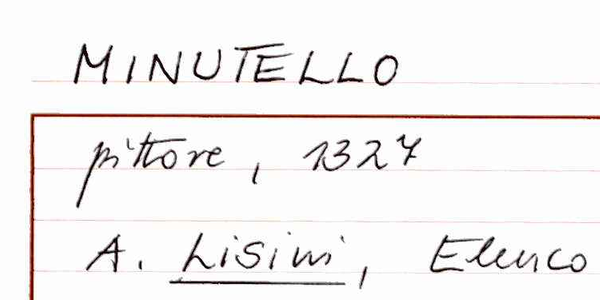 MINUTELLO
pittore, 1327
A. Lisini, Elenco